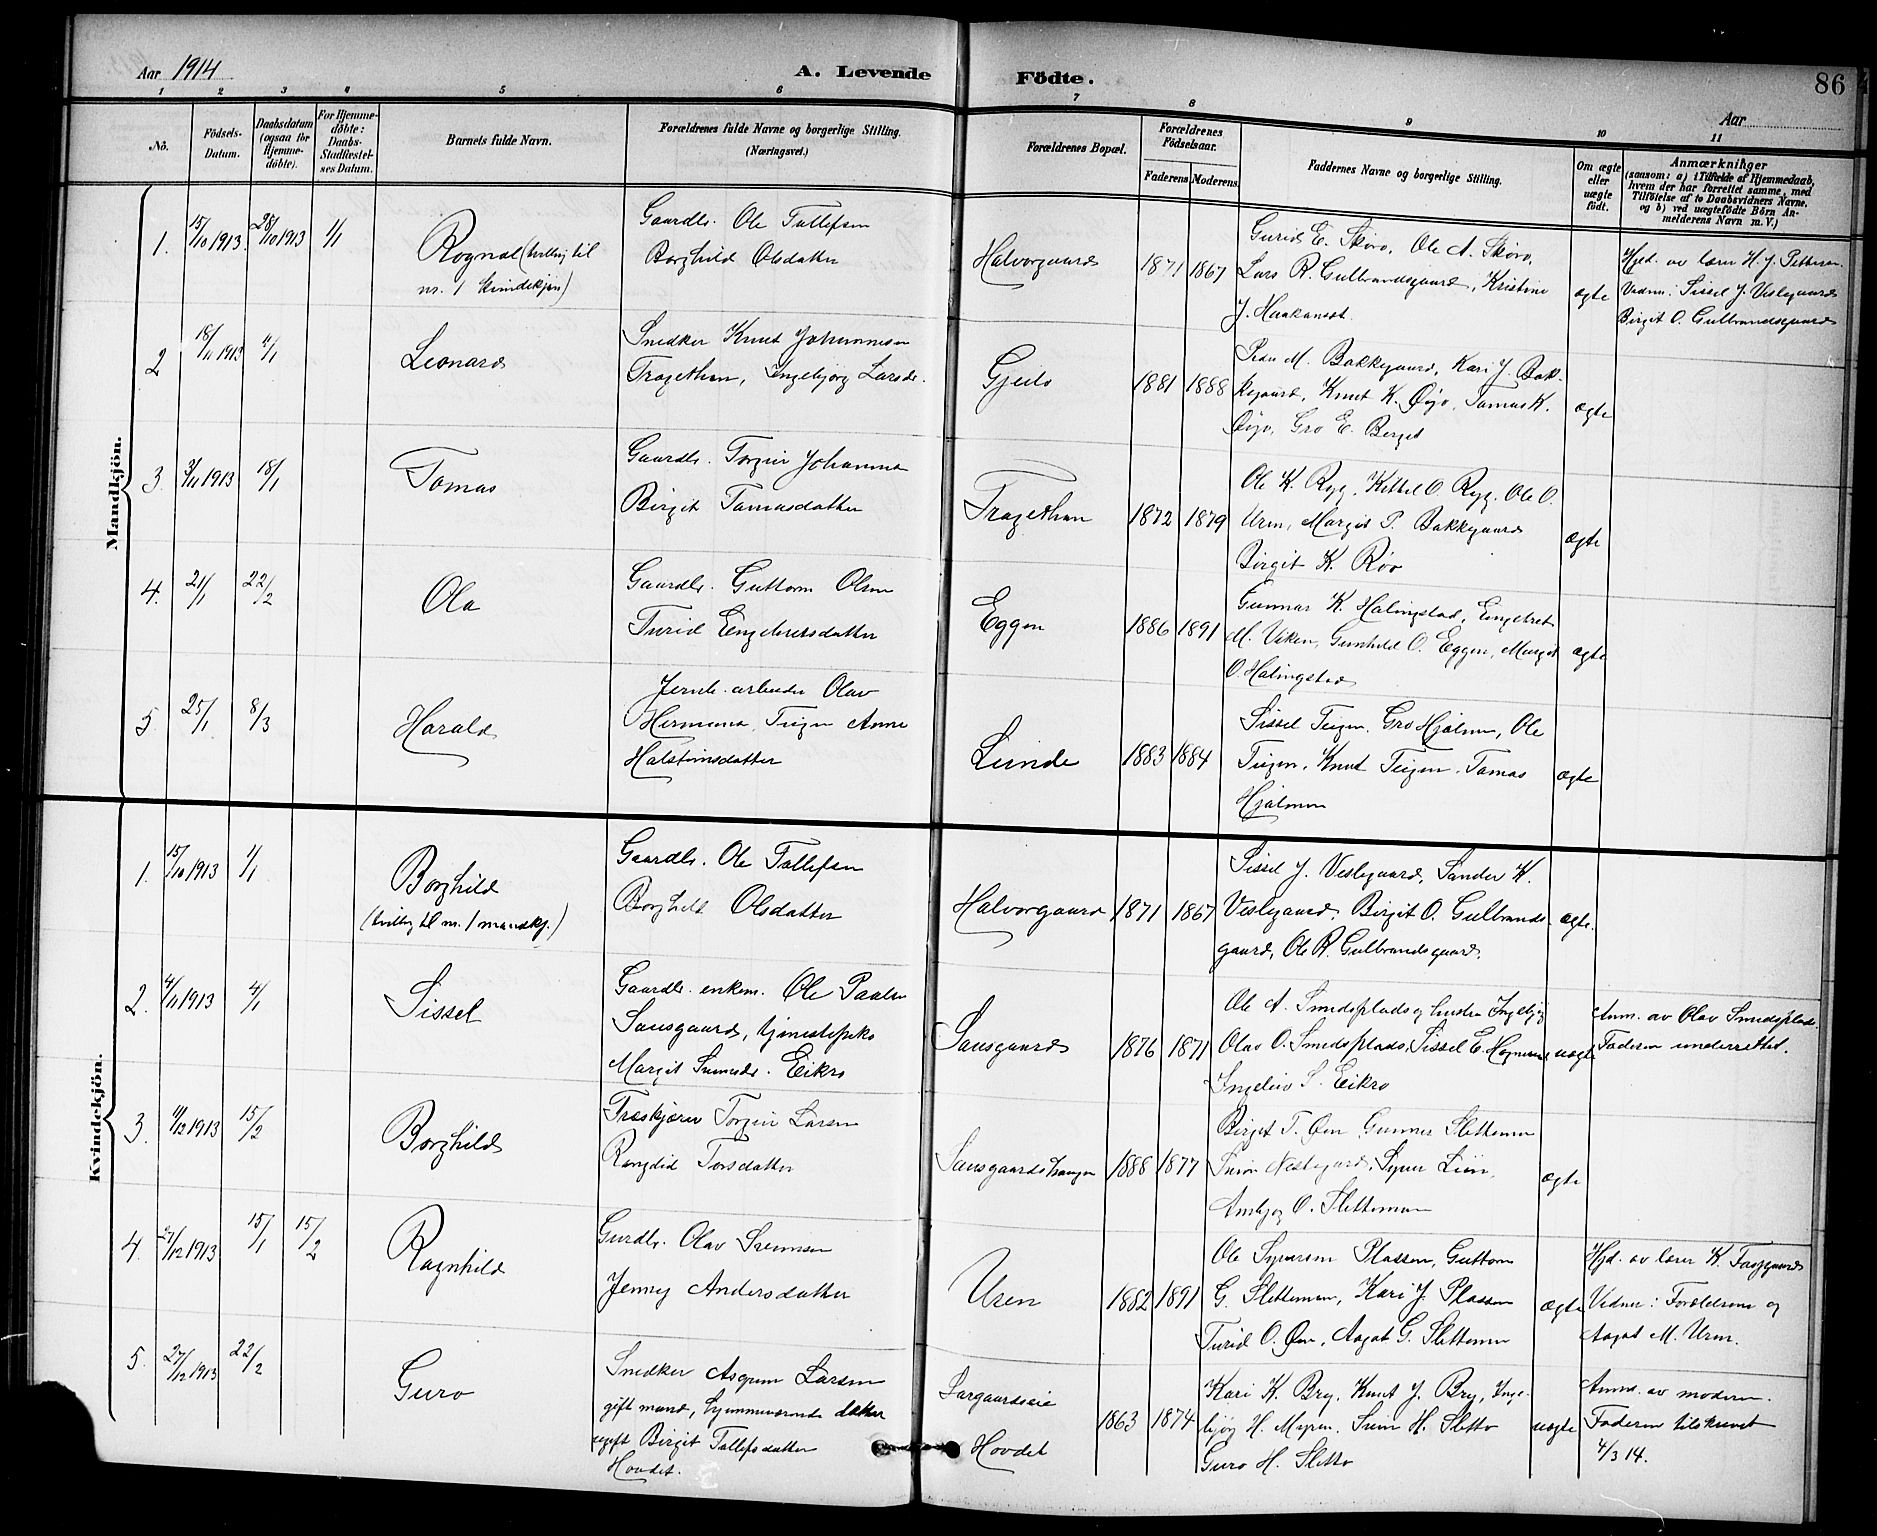 Aar 1914
A. Levende Födte.
86
Aar
1 2 3 4 5 6 7 8 9 10 11
No.
Födsels-Datum.
Daabsdatum (ogsaa for Hjemme-döbte).
For Hjemme-döbte: Daabs-Stadfæstel-ses Datum.
Barnets fulde Navn.
Forældrenes fulde Navne og borgerlige Stilling.
(Næringsvei.)
Forældrenes Bopæl.
Forældrenes Födselsaar.
Faderens Moderens.
Faddernes Navne og borgerlige Stilling.
Om ægte eller uægte födt.
Anmærkninger
(saasom: a) i Tilfælde af Hjemmedaab,
hvem der har forrettet samme, med
Tilföielse af to Daabsvidners Navne,
og b) ved uægtefödte Börn An-
melderens Navn m. V.)
Mandkjön.
1. 15/10 1913 28/10 1913 1/1
Rognal (tvilling til
nr. 1 kvindekjøn)
Gaardbr. Ole Tollefsen
Borghild Olsdatter
Halvorgaard 1871 1867
Gurid E. Skøro, Ole A. Skøro,
Lars R. Gulbrandsgaard, Kristine
J. Haakanset.
ægte
Hjd. av lærer H. J. Pettersen.
Vidner: Sissel J. Veslegaard
Birgit O. Gulbrandsgaard
2 18/11 1913 4/1
Leonard
Snedker Knut Johannesen
Tragethon, Ingebjørg Larsd.
Gjeilo 1881 1888
M. Bakkegaard, Kari J. Bak-
kegaard, Knut K. Øyo, Tomas K.
Øyo, Gro E. Berget
ægte
3. 3/11 1913 18/1
Tomas
Gaardbr. Torgeir Johannes
Birgit Tomasdatter
Tragethon 1872 1879
Ole K. Ryg, Kittel O. Ryg, Ole O.
Uren, Margit P. Bakkegaard
Birgit K. Røo
ægte
4. 21/1 22/2
Ola
Gaardbr. Guttorm Olsen
Turid Engebretsdatter
Eggen 1886 1891
Gunnar K. Halingstad, Engebret
M. Viken, Gunhild O. Eggen, Margit
O. Halingstad
ægte
5. 25/1 8/3
Harald
Jernb. arbeider Olav
Hermans. Teigen Anne
Halsteinsdatter
Lunde 1883 1884
Sissel Teigen, Gro Hjalmen, Ole
Teigen, Knut Teigen, Tomas
Hjalmen
ægte
Kvindekjön.
1. 15/10 1913 1/1
Borghild
(tvilling til nr. 1 mandkj.)
Gaardbr. Ole Tollefsen
Borghild Olsdatter
Halvorgaard 1871 1867
Sissel J. Veslegaard, Sander K.
Veslegaard, Birgit O. Gulbrands-
gaard, Ole R. Gulbrandsgaard.
ægte.
2. 4/11 1913 4/1
Sissel
Gaardbr. enkem. Ole Paalsen
Sausgaard, tjenestepike
Margit Svensd. Eikro
Sausgaard 1876 1871
Ole A. Smedsplads og hustru Ingebjør
Olav O. Smedsplads, Sissel E.
Ingeleiv S. Eikro
uægte
Anm. av Olav Smedsplads.
Faderen underrettet.
3. 11/12 1913 15/2
Borghild
Træskjærer Torgeir Larsen
Rangdid Torsdatter
Sausgaardshaugen 1888 1877
Birgit T. Øen Gunnar Slettemoen
Nestegard, Syver Lien,
O. Slettemoen
ægte
4. 27/12 1913 15/1 15/2
Ragnhild
Gardbr. Olav Svensen
Jenny Andersdatter
Uren 1882 1891
Ole Syversen Plassen, Guttorm
G. Slettemoen, Kari J. Plassen
Turid O. Øen, Aagot G. Slettemoen
ægte
Hjd. av lærer K.
Vidner: Forældrene og
Aagot M. Uren.
5. 27/12 1913 22/2
Guro
Snedker Asgrim Larsen
gift mand, hjemmeværende datter
ugift Birgit Tollefsdatter
Hovdet.
Sorgaardseie
Hovdet
1863 1874
Kari K. Bry, Knut J. Bry, Inge-
bjørg H. Myren, Svein H. Sletto
Guro H. Sletto
uægte
Anm. av moderen.
Faderen tilskrevet
4/3 14.